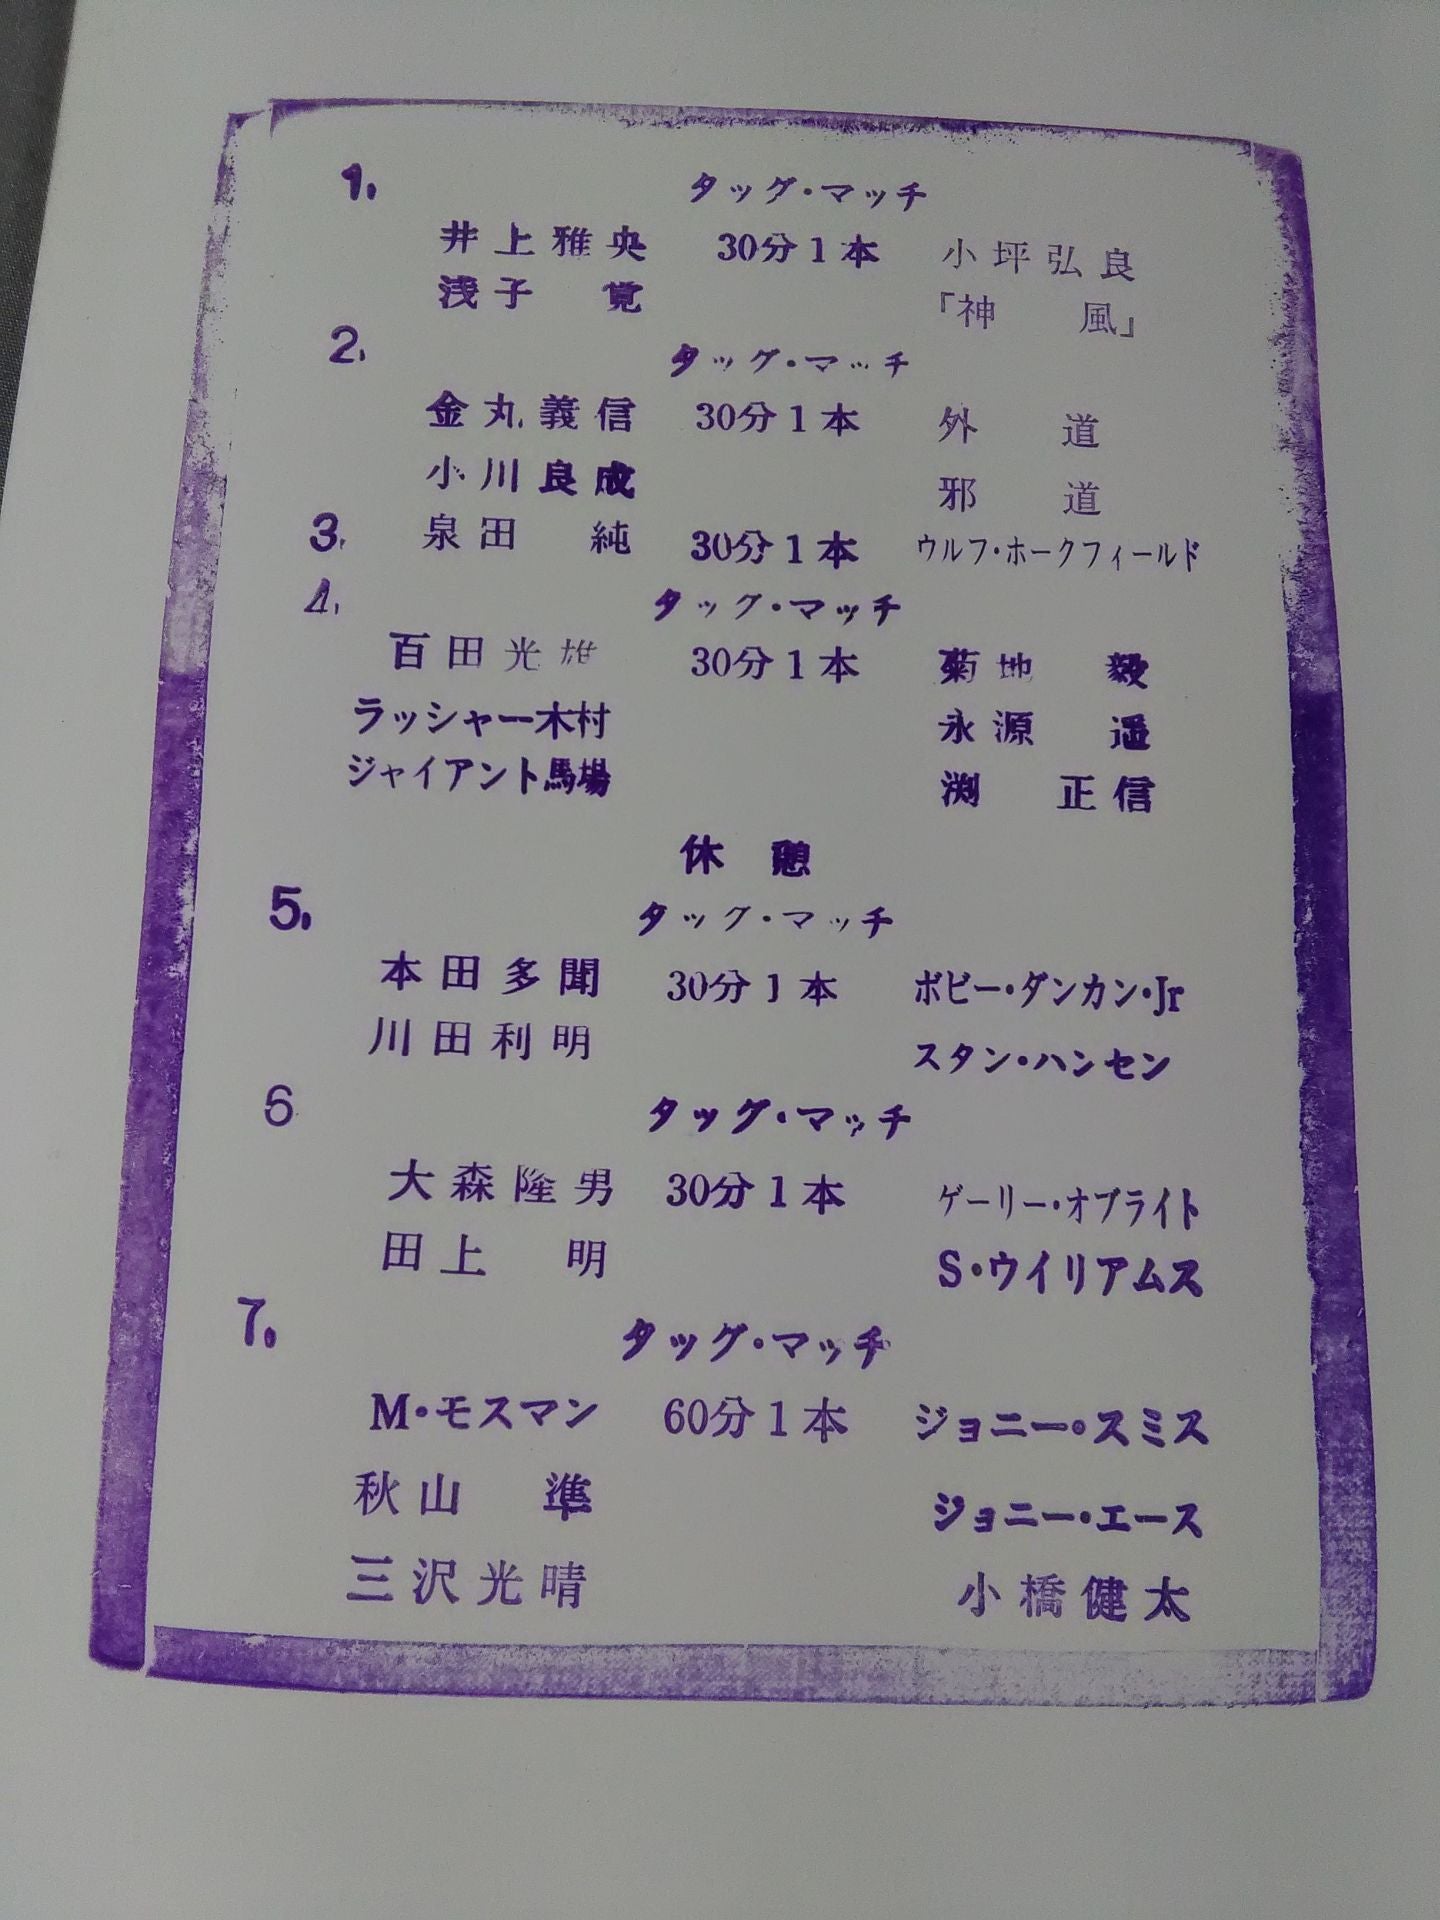 1. タッグ・マッチ
井上雅央 30分1本 小坪弘良
浅子 覚 「神 風」
2. タッグ・マッチ
金丸義信 30分1本 外 道
小川良成 邪 道
3. 泉田 純 30分1本 ウルフ・ホークフィールド
4. タッグ・マッチ
百田光雄 30分1本 菊地 毅
ラッシャー木村 永源 遥
ジャイアント馬場 渕 正信
休 憩
5. タッグ・マッチ
本田多聞 30分1本 ボビー・ダンカン・Jr
川田利明 スタン・ハンセン
6 タッグ・マッチ
大森隆男 30分1本 ゲーリー・オブライト
田上 明 S・ウイリアムス
7. タッグ・マッチ
M・モスマン 60分1本 ジョニー・スミス
秋山 準 ジョニー・エース
三沢光晴 小橋健太